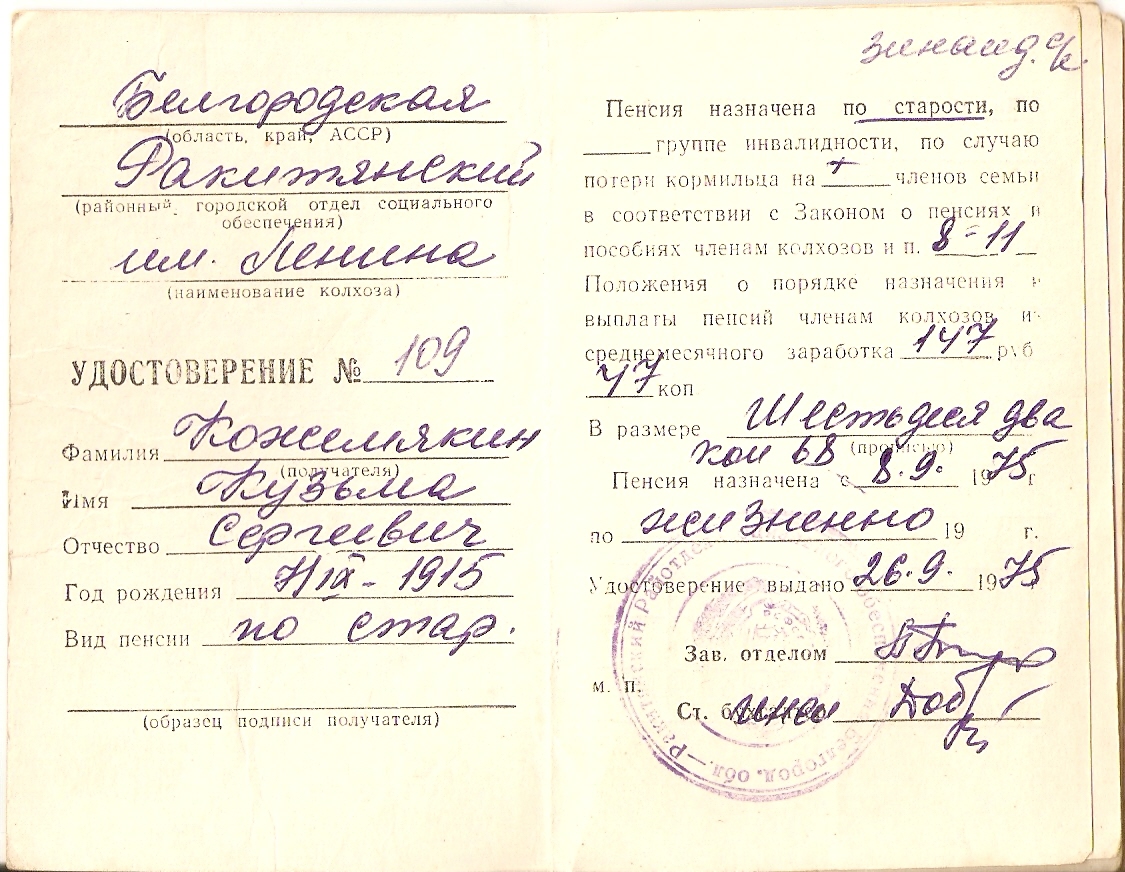 Белгородская
(область, край, АССР)
Ракитянский
(районный, городской отдел социального
обеспечения)
им. Ленина
(наименование колхоза)
УДОСТОВЕРЕНИЕ № 109
Фамилия Кожемякин
(получателя)
Имя Кузьма
Отчество Сергеевич
Год рождения 7/IX - 1915
Вид пенсии по стар.
(образец подписи получателя)
Пенсия назначена по старости, по
группе инвалидности, по случаю
потери кормильца на + членов семьи
в соответствии с Законом о пенсиях и
пособиях членам колхозов и п. 8-11
Положения о порядке назначения и
выплаты пенсий членам колхозов из
среднемесячного заработка 147 руб
47 коп
В размере Шестьдесят два
(прописью)
коп 68
Пенсия назначена с 8.9. 1975 г
по жизненно 19 г.
Удостоверение выдано 26.9. 1975
Зав. отделом
М. П.
Ст.